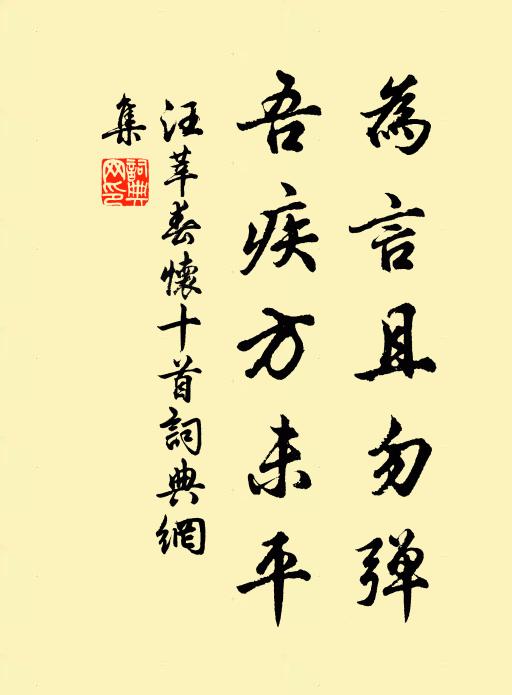 為言且勿弹
吾疾方未平
汪莘春懷十首詞典網
集
詞典網印